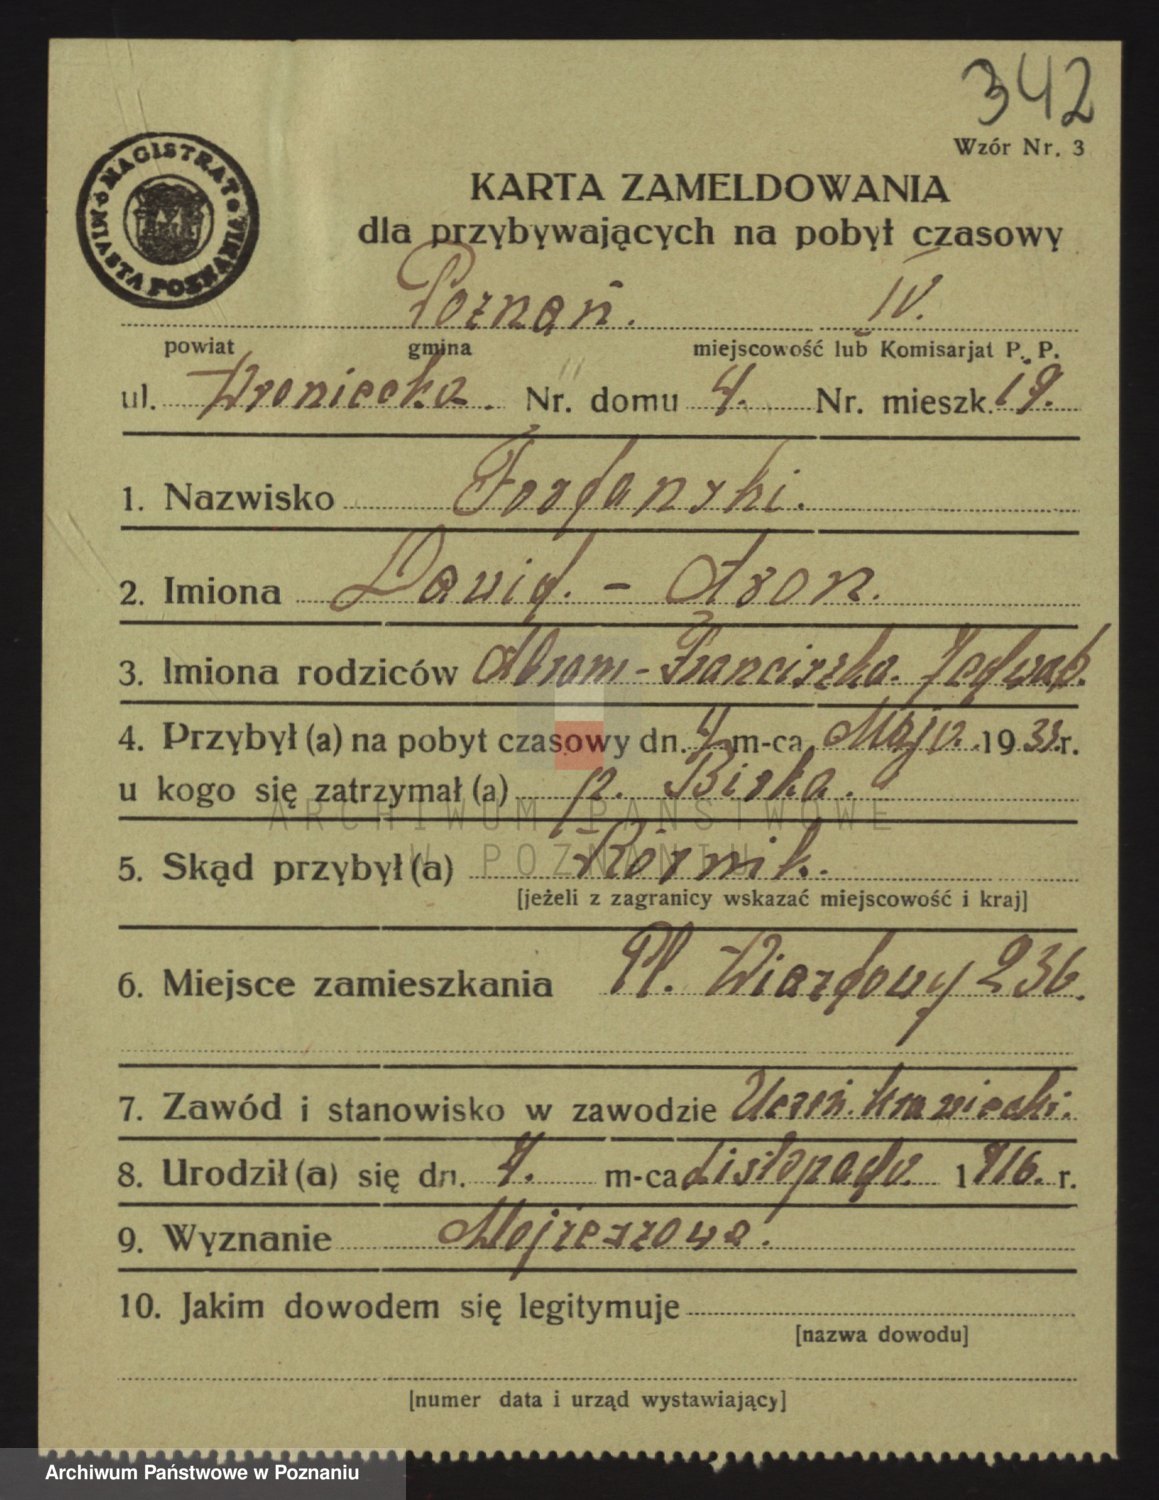 342
Wzór Nr. 3
MAGISTRAT MIASTA POZNANIA
KARTA ZAMELDOWANIA
dla przybywających na pobyt czasowy
Poznań. IV.
powiat gmina miejscowość lub Komisarjat P. P.
ul. Wroniecka. Nr. domu 4. Nr. mieszk. 19.
1. Nazwisko Fordanski.
2. Imiona Dawid. - Aron.
3. Imiona rodziców Abram - Franciszka. Jedwab.
4. Przybył (a) na pobyt czasowy dn. 4 m-ca Maja. 1933. r.
u kogo się zatrzymał (a) p. Birka.
ARCHIWUM PAŃSTWOWE
W POZNANIU
5. Skąd przybył (a) Kórnik.
[jeżeli z zagranicy wskazać miejscowość i kraj]
6. Miejsce zamieszkania Pl. 236.
7. Zawód i stanowisko w zawodzie Uczeń. krawiecki.
8. Urodził (a) się dn. 4. m-ca Listopada. 1916. r.
9. Wyznanie Mojżeszowe.
10. Jakim dowodem się legitymuje
[nazwa dowodu]
[numer data i urząd wystawiający]
Archiwum Państwowe w Poznaniu